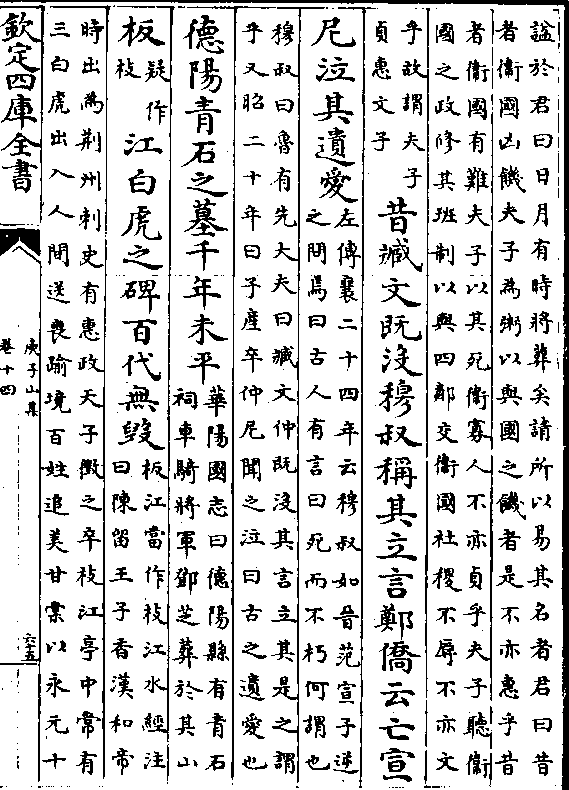 諡於君曰日月有時將葬矣請所以易其名者君曰昔
者衞國凶饑夫子為粥以與國之饑者是不亦惠乎昔
者衞國有難夫子以其死衞寡人不亦貞乎夫子聽衞
國之政修其班制以與四鄰交衞國社稷不辱不亦文
乎故謂夫子
貞惠文子
昔臧文既沒穆叔稱其立言鄭僑云亡宣
尼泣其遺愛
左傳襄二十四年云穆叔如晉范宣子逆
之問焉曰古人有言曰死而不朽何謂也
穆叔曰魯有先大夫曰臧文仲既沒其言立其是之謂
乎又昭二十年曰子產卒仲尼聞之泣曰古之遺愛也
德陽青石之墓千年未平
華陽國志曰德陽縣有青石
祠車騎將軍鄧芝葬於其山
板
疑作
枝
江白虎之碑百代無毁
板江當作枝江水經注
曰陳留王子香漢和帝
時出為荆州刺史有惠政天子徵之卒枝江亭中常有
三白虎出入人間送喪踰境百姓追美甘棠以永元十
欽定四庫全書
庾子山集
卷十四
六五